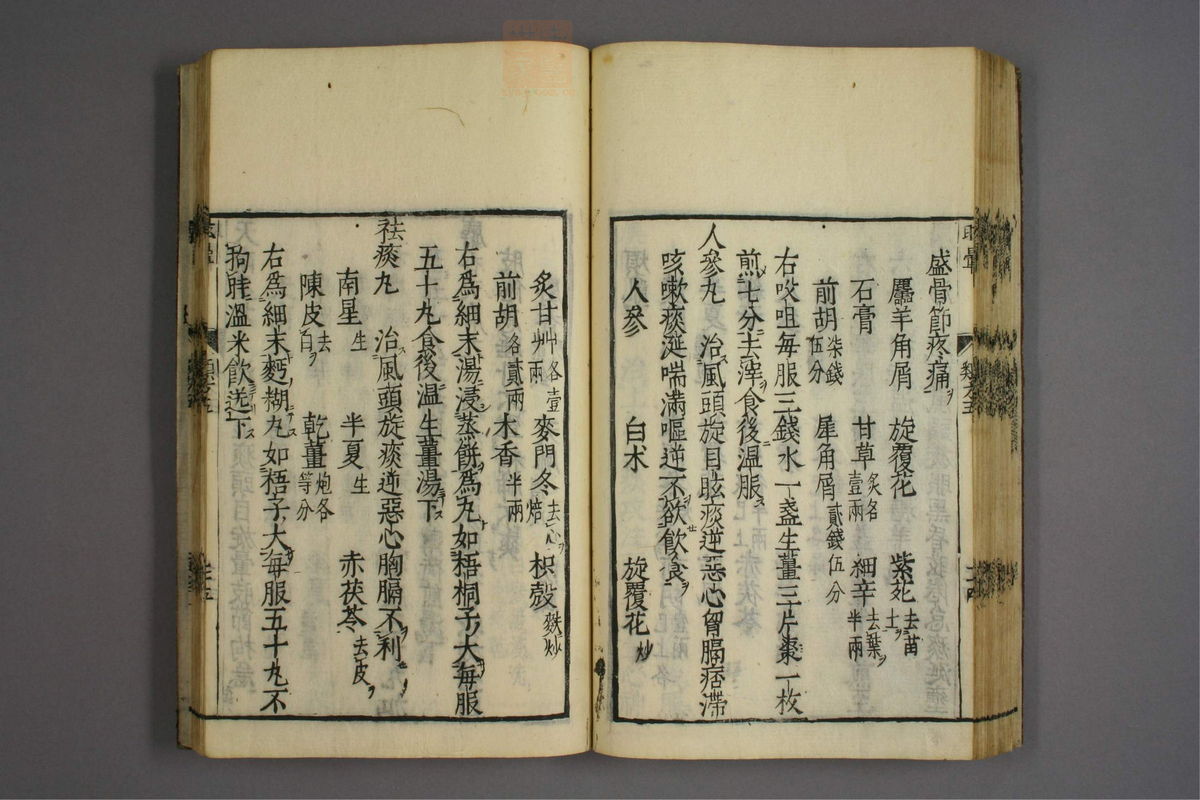 盛骨節疼痛
麢羊角屑 旋覆花 紫菀去苗土
石膏 甘草炙各壹兩 細辛去葉半兩
前胡柒錢伍分 犀角屑貳錢伍分
右㕮咀每服三錢水一盞生薑三片棗一枚
煎七分去滓食後溫服
人參丸 治風頭旋目眩痰逆惡心胷膈痞滯
咳嗽痰涎喘滿嘔逆不欲飲食
人參 白朮 旋覆花炒
炙甘艸各壹兩 麥門冬去心焙 枳殼麩炒
前胡各貳兩 木香半兩
右爲細末湯浸蒸餅爲丸如梧桐子大每服
五十丸食後溫生薑湯下
祛痰丸 治風頭旋痰逆惡心胸膈不利
南星生 半夏生 赤茯苓去皮
陳皮去白 乾薑炮各等分
右爲細末麪糊丸如梧子大每服五十丸不
拘時溫米飲送下